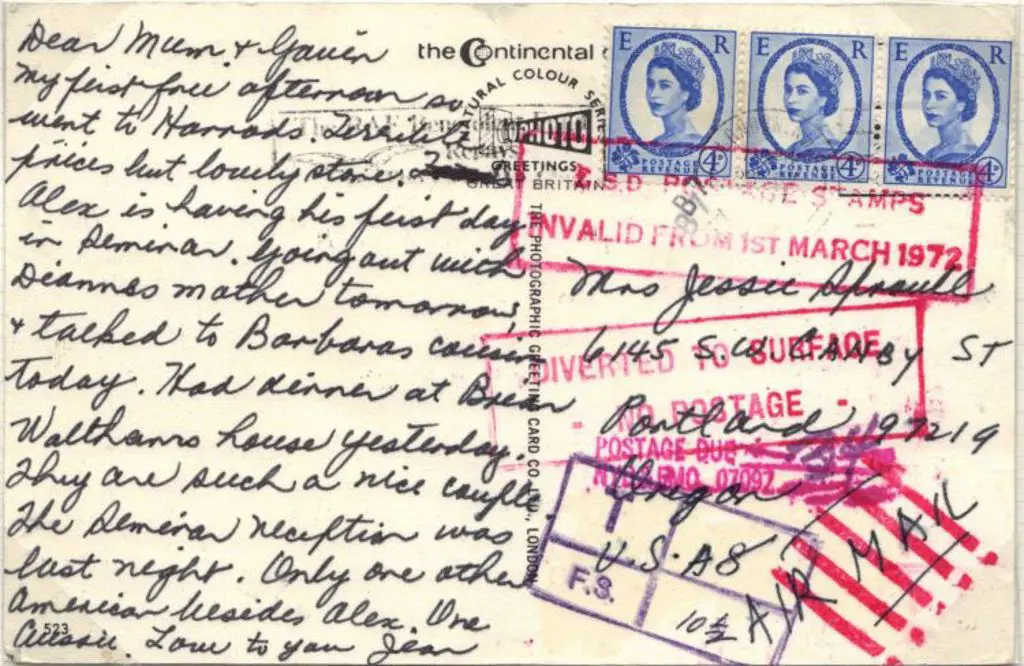 Dear Mum & Gavin
My first free afternoon so
went to Harrods. Terrible
prices but lovely store.
Alex is having his first day
in Seminar. Going out with
Diannes mother tomorrow,
& talked to Barbaras cousin
today. Had dinner at Brian
Walthams house yesterday.
They are such a nice couple
The Seminar reception was
last night. Only one other
American besides Alex. One
Aussie. Love to you Jean
523
the Continental
NATURAL COLOUR SERIES
PHOTO
GREETINGS
GREAT BRITAIN
THE PHOTOGRAPHIC GREETING CARD CO. LTD., LONDON
E R
POSTAGE REVENUE 4D
E R
POSTAGE REVENUE 4D
E R
POSTAGE REVENUE 4D
£.S.D. POSTAGE STAMPS
INVALID FROM 1ST MARCH 1972
Mrs Jessie
6145 S.W. CANBY ST
Portland 97219
Oregon
U.S.A
DIVERTED TO SURFACE
- NO POSTAGE -
POSTAGE DUE
07092
T
F.S.
10
AIR MAIL